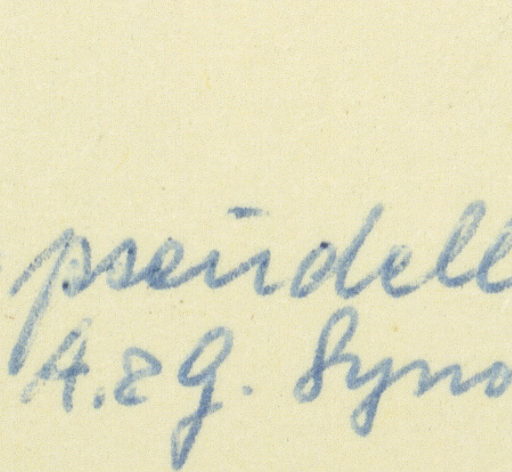 pseudell
A. & G. Syno